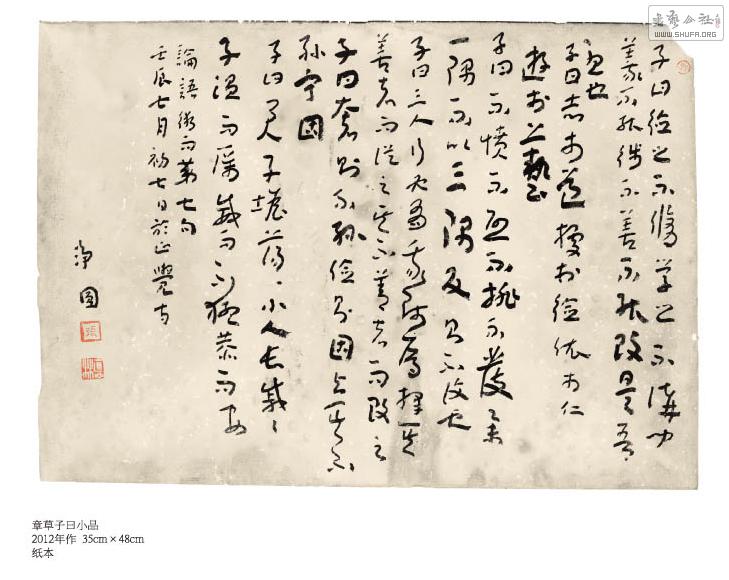 書藝公社
WWW.SHUFA.ORG
子曰德之不脩學之不講聞
義不能徙不善不能改是吾
憂也
子曰志於道據於德依於仁
遊於藝
子曰不憤不啟不悱不發舉
一隅不以三隅反則不復也
子曰三人行必有我師焉擇其
善者而從之其不善者而改之
子曰奢則不孫儉則固與其不
孫寧固
子曰君子坦蕩〻小人長戚〻
子溫而厲威而不猛恭而安
論語術而第七句
壬辰七月初七日於正覺寺
章草子曰小品
2012年作 35cm×48cm
纸本